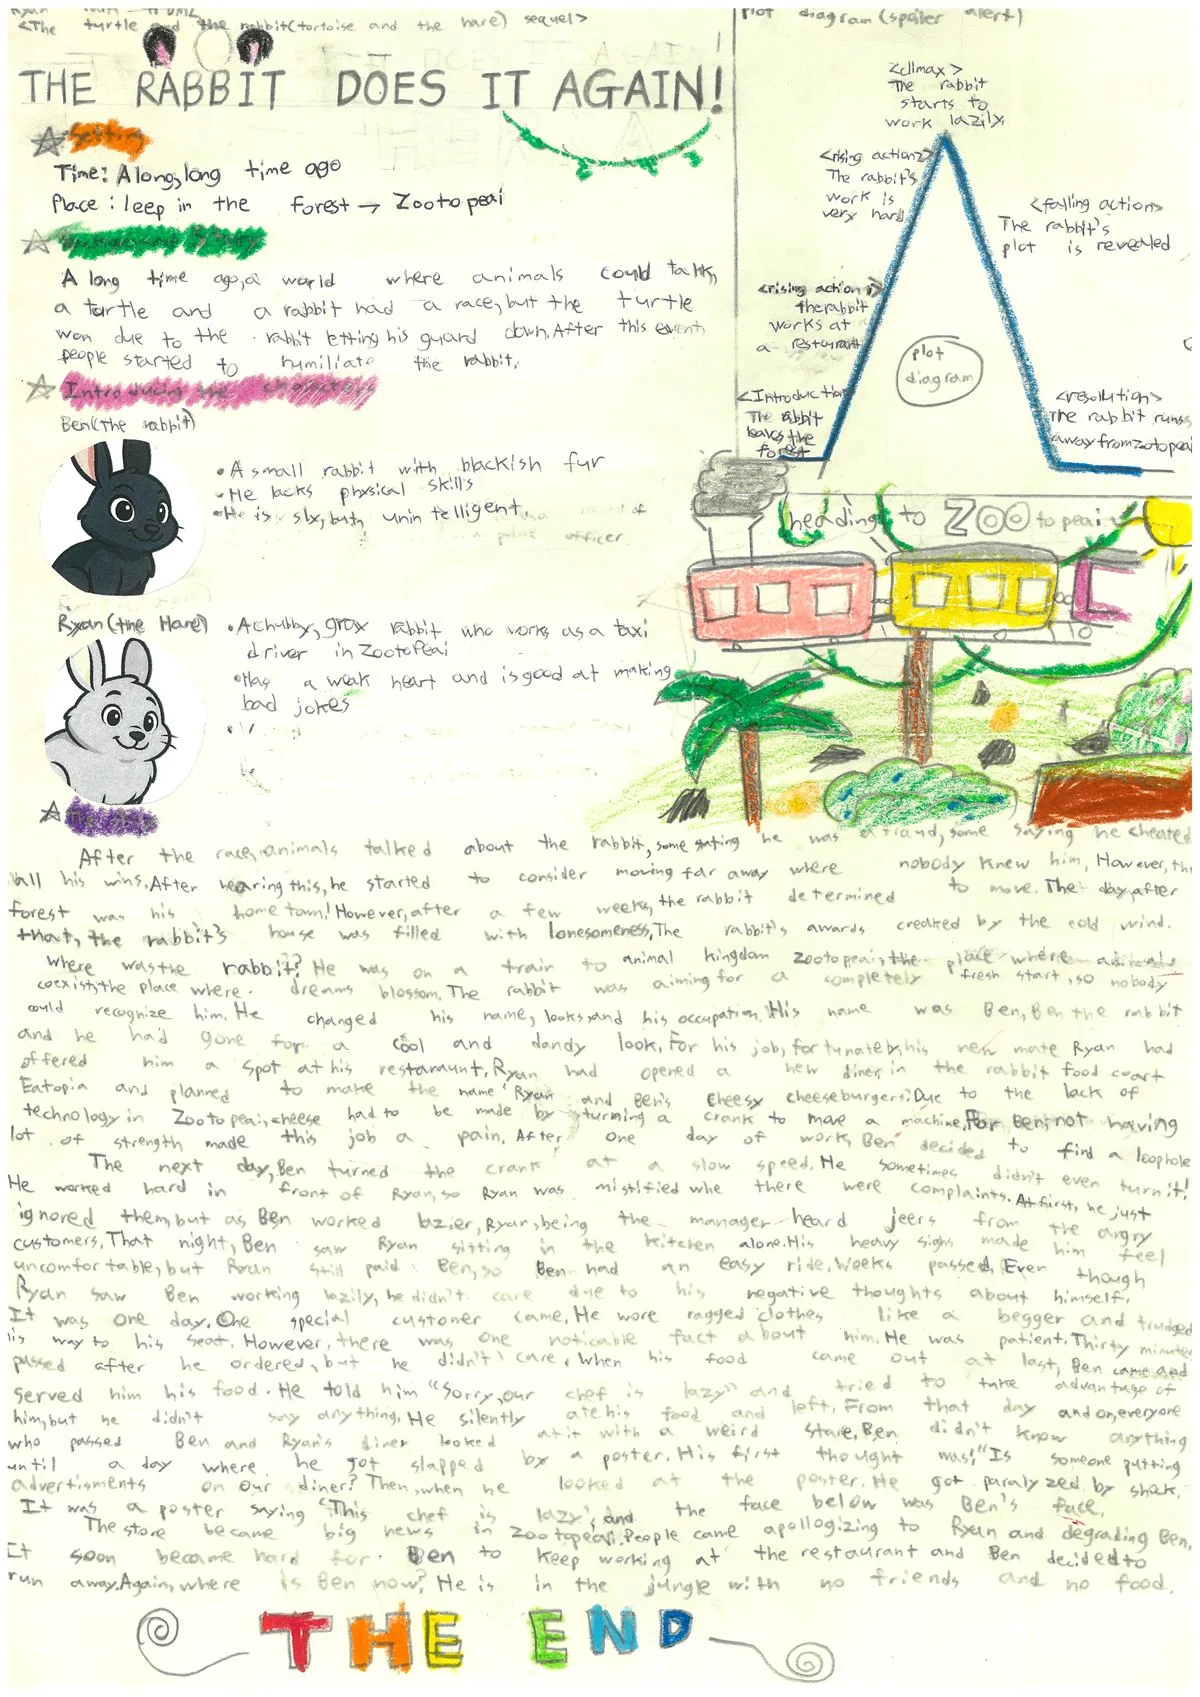 <The turtle and the rabbit(tortoise and the hare) sequel>
THE RABBIT DOES IT AGAIN!
Setting
Time: A long, long time ago
Place : leep in the forest → Zootopeai
A long time ago, a world where animals could talk,
a turtle and a rabbit had a race, but the turtle
won due to the rabbit letting his guard down. After this event,
people started to humiliate the rabbit.
Introducing the characters
Ben(the rabbit)
• A small rabbit with blackish fur
• He lacks physical skills
• He is sly, but unintelligent.
officer
Ryan(the Hare)
• A chubby, gray rabbit who works as a taxi
driver in ZootoPeai
• Has a weak heart and is good at making
bad jokes
plot diagram (spoiler alert)
<climax>
The rabbit
starts to
work lazily
<rising action2>
The rabbit's
work is
very hard
<falling action>
The rabbit's
plot is revealed
<rising action 1>
the rabbit
works at
a restaurant
plot
diagram
<Introduction>
The rabbit
leaves the
forest
<resolution>
The rabbit runs
away from zootopeai
heading to ZOOtopeai
After the race, animals talked about the rabbit, some stating he was a fraud, some saying he cheated
all his wins. After hearing this, he started to consider moving far away where nobody knew him, However, the
forest was his home town! However, after a few weeks, the rabbit determined to move. The day after
that, the rabbit's house was filled with lonesomeness, The rabbit's awards creaked by the cold wind.
where was the rabbit? He was on a train to animal kingdom zootopeai, the place where animals
coexist, the place where dreams blossom. The rabbit was aiming for a completely fresh start, so nobody
could recognize him. He changed his name, looks, and his occupation. His name was Ben, Ben the rabbit
and he had gone for a cool and dandy look. For his job, fortunately, his new mate Ryan had
offered him a spot at his restaraunt. Ryan had opened a new diner in the rabbit food court
Eatopia and planned to make the name 'Ryan and Ben's cheesy cheeseburgers'. Due to the lack of
technology in Zootopeai, cheese had to be made by turning a crank to move a machine. For Ben, not having
lot of strength made this job a pain. After one day of work, Ben decided to find a loophole
The next day, Ben turned the crank at a slow speed. He sometimes didn't even turn it!
He worked hard in front of Ryan, so Ryan was mistified whe there were complaints. At first, he just
ignored them, but as Ben worked lazier, Ryan, being the manager heard jeers from the angry
customers. That night, Ben saw Ryan sitting in the kitchen alone. His heavy sighs made him feel
uncomfortable, but Ryan still paid Ben, so Ben had an easy ride. Weeks passed, Even though
Ryan saw Ben working lazily, he didn't care due to his negative thoughts about himself.
It was one day. One special customer came. He wore ragged clothes like a begger and trudged
his way to his seat. However, there was one noticable fact about him. He was patient. Thirty minutes
passed after he ordered, but he didn't care. When his food came out at last, Ben came and
served him his food. He told him "Sorry, our chef is lazy" and tried to take advantage of
him, but he didn't say anything. He silently ate his food and left. From that day and on, everyone
who passed Ben and Ryan's diner looked at it with a weird stare. Ben didn't know anything
until a day where he got slapped by a poster. His first thought was, "Is someone putting
advertisments on our diner? Then, when he looked at the poster. He got paralyzed by shok.
It was a poster saying 'This chef is lazy', and the face below was Ben's face.
The store became big news in Zootopeai. People came apollogizing to Ryan and degrading Ben.
It soon became hard for Ben to keep working at the restaurant and Ben decided to
run away. Again, where is Ben now? He is in the jungle with no friends and no food.
THE END